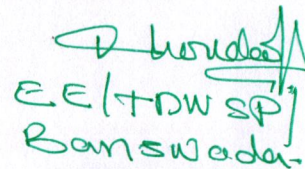 EE/TDWSP
Banswada